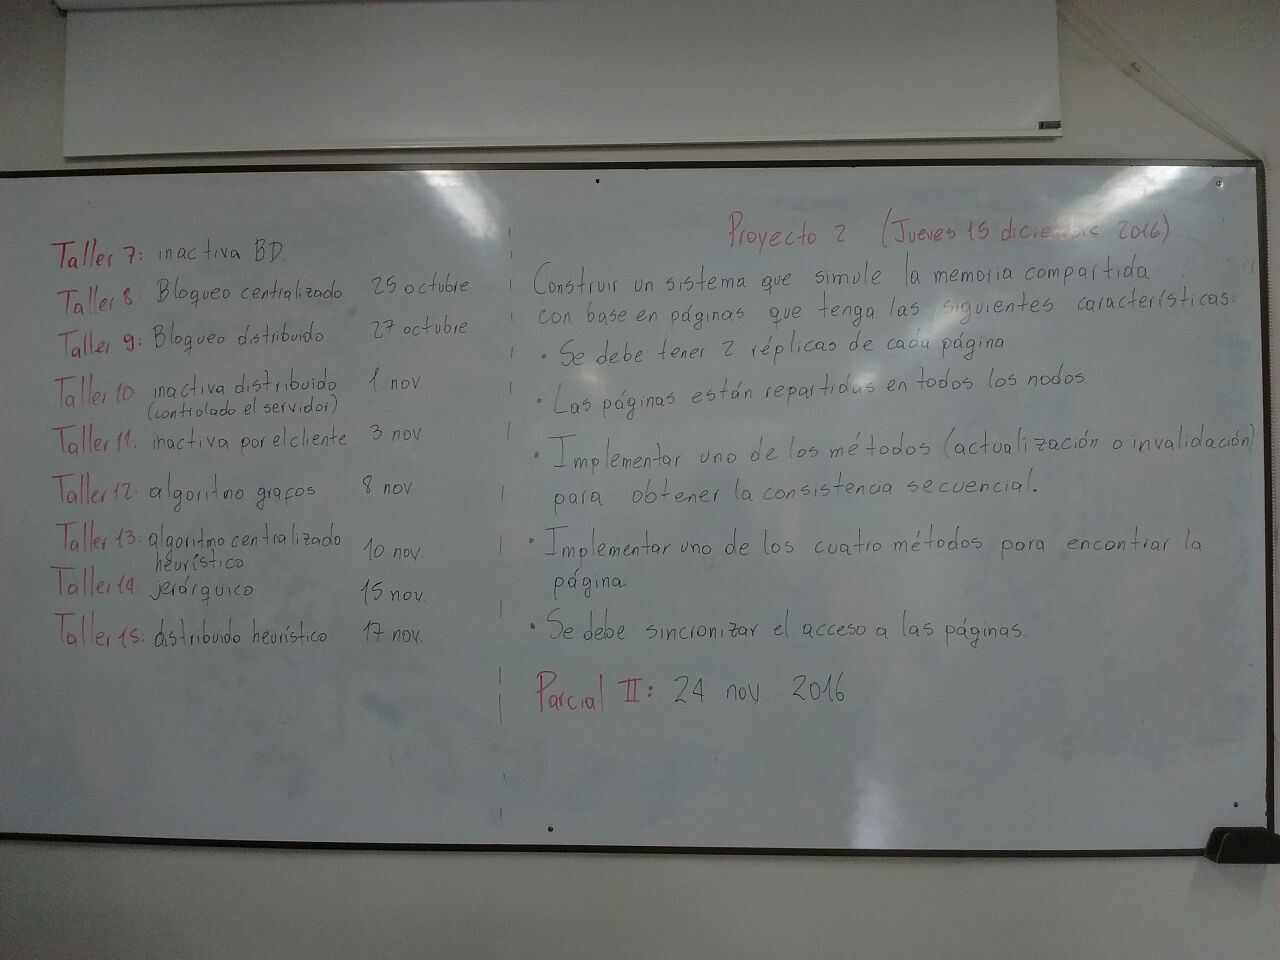 Taller 7: inactiva BD.
Taller 8: Bloqueo centralizado 25 octubre
Taller 9: Bloqueo distribuido 27 octubre
Taller 10: inactiva distribuido 1 nov.
(controlado el servidor)
Taller 11: inactiva por el cliente 3 nov
Taller 12: algoritmo grafos 8 nov
Taller 13: algoritmo centralizado
heurístico 10 nov.
Taller 14: jerárquico 15 nov.
Taller 15: distribuido heurístico 17 nov.
Proyecto 2 (Jueves 15 diciembre 2016)
Construir un sistema que simule la memoria compartida
con base en páginas que tenga las siguientes características:
• Se debe tener 2 réplicas de cada página
• Las páginas están repartidas en todos los nodos.
• Implementar uno de los métodos (actualización o invalidación)
para obtener la consistencia secuencial.
• Implementar uno de los cuatro métodos para encontrar la
página.
• Se debe sincronizar el acceso a las páginas.
Parcial II: 24 nov. 2016